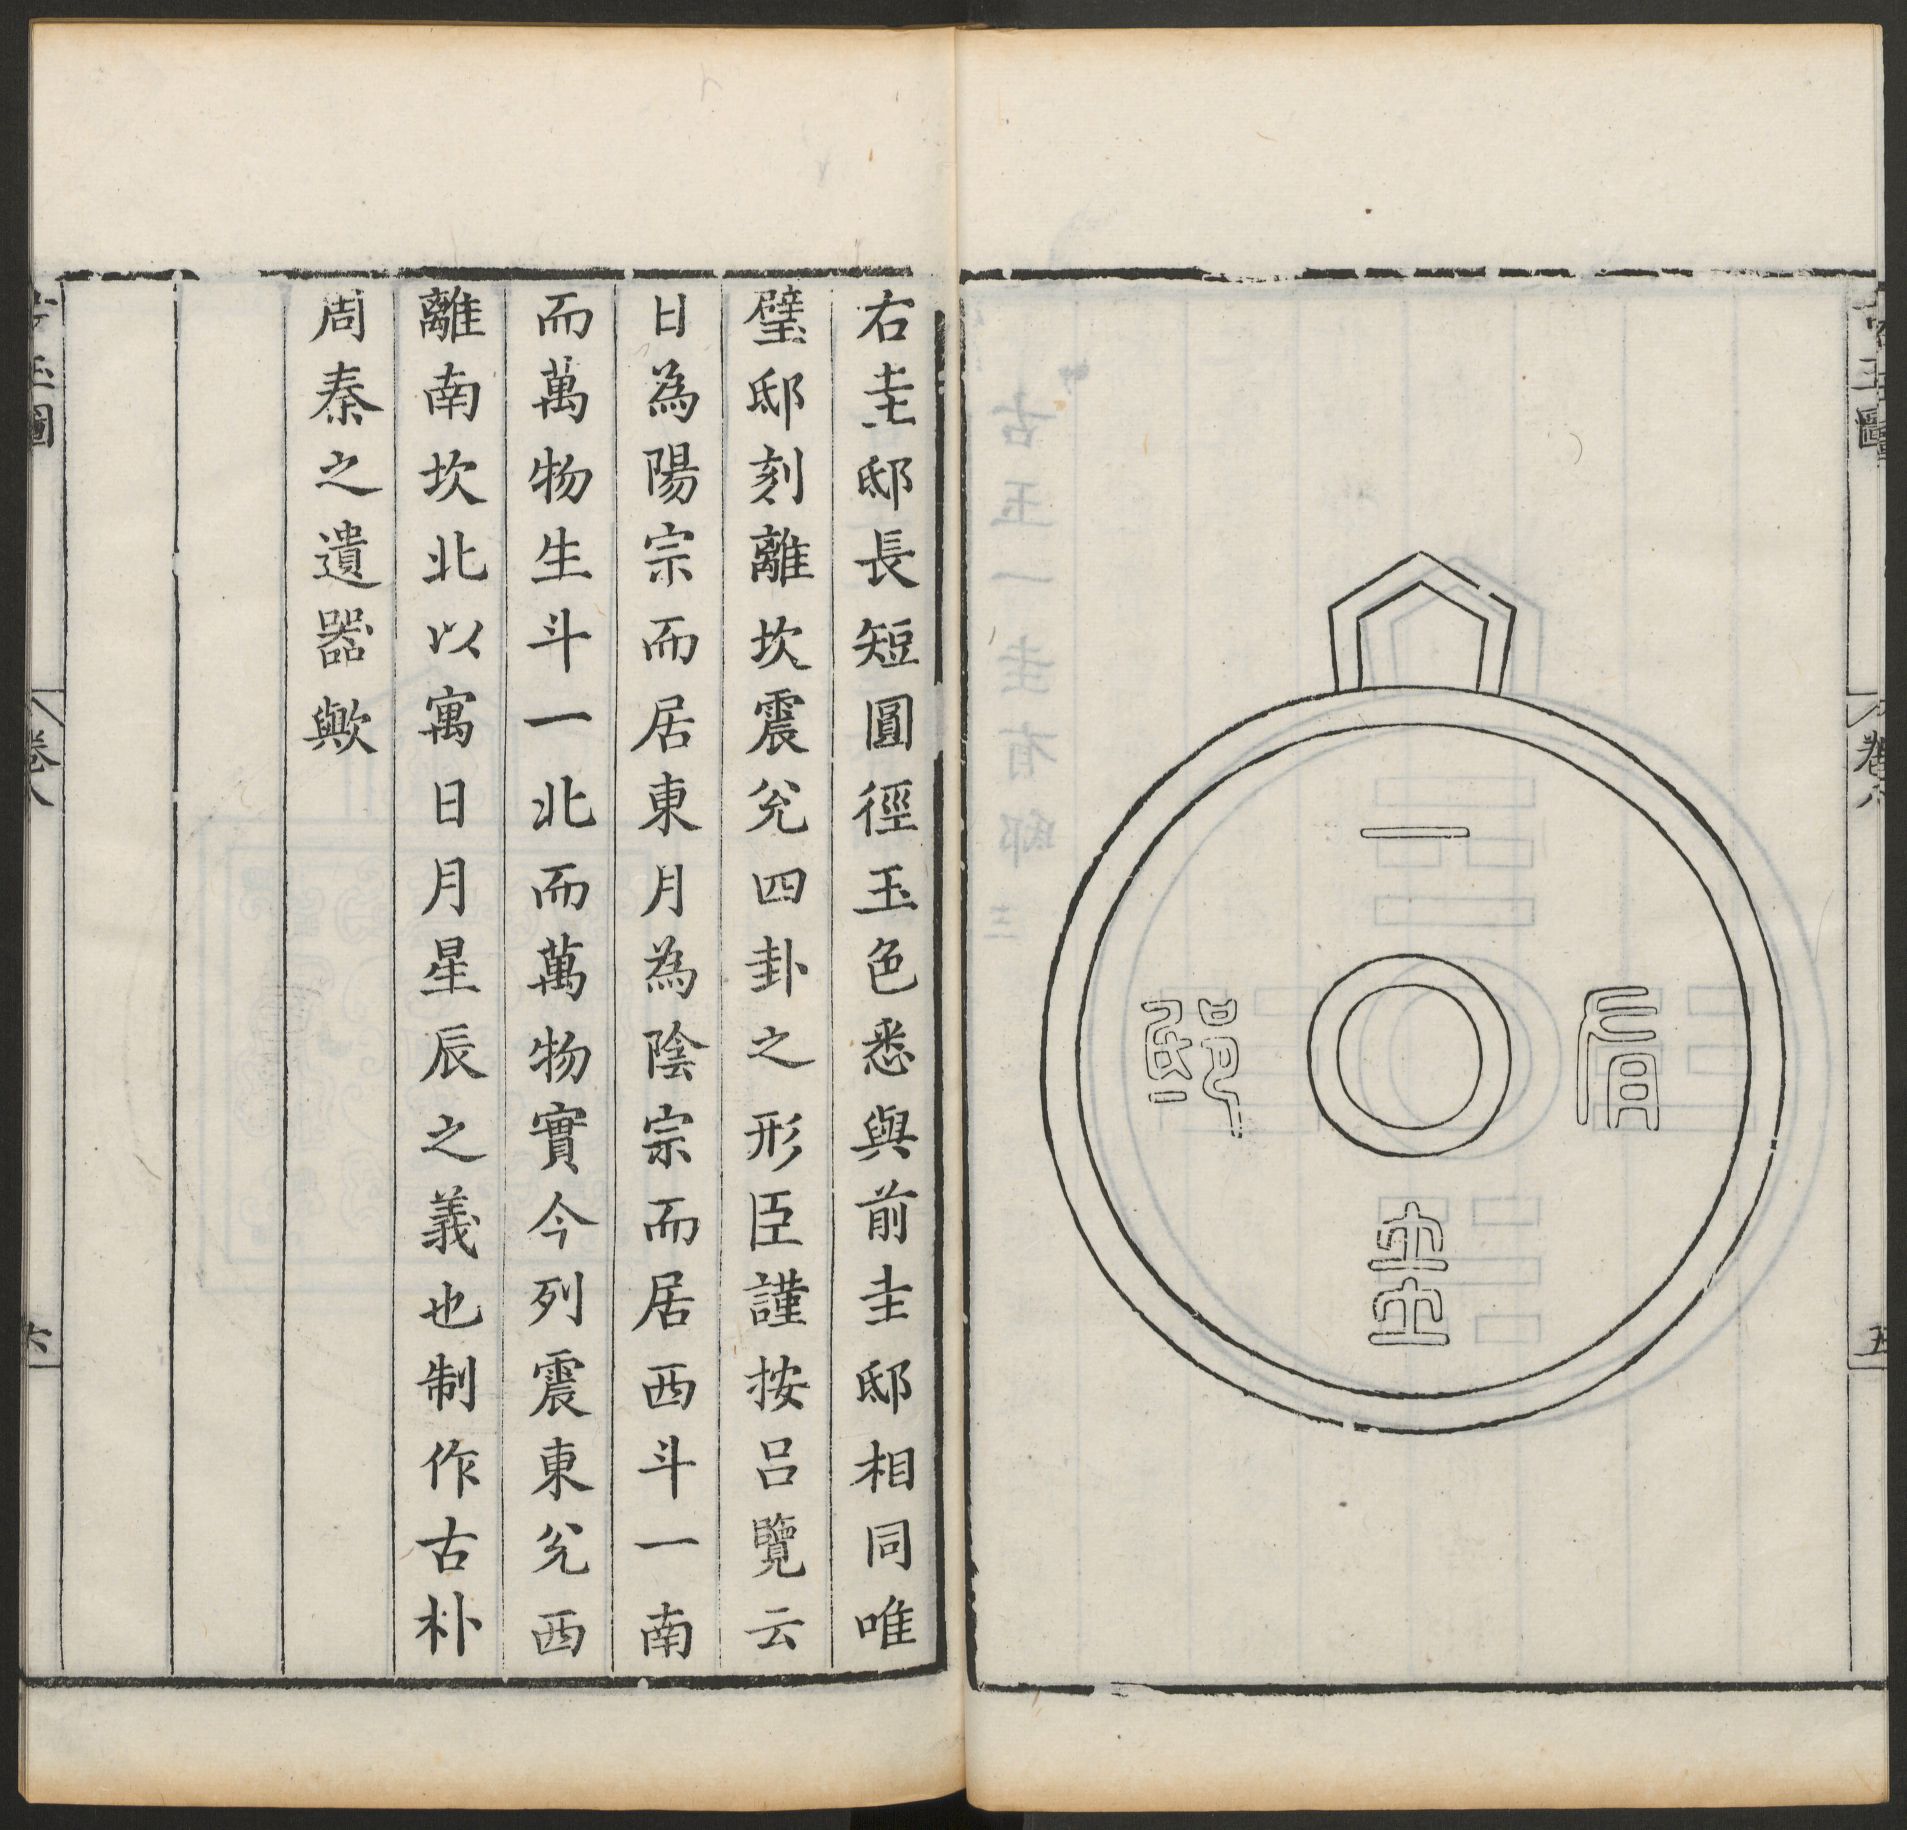 古玉圖
卷八
五
一
圭
有
邸
右圭邸長短圓徑玉色悉與前圭邸相同唯
璧邸刻離坎震兊四卦之形臣謹按呂覽云
日為陽宗而居東月為陰宗而居西斗一南
而萬物生斗一北而萬物實今列震東兊西
離南坎北以寓日月星辰之義也制作古朴
周秦之遺器歟
古玉圖
卷八
六